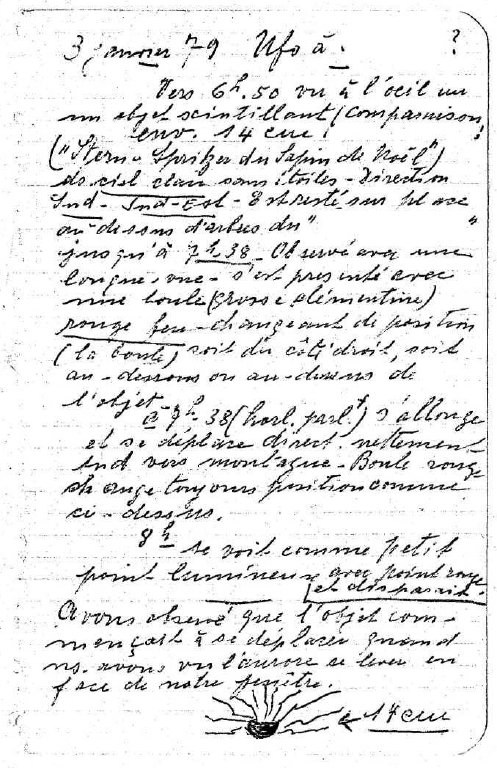 3 janvier 79 Ufo à . ?
Vers 6h.50 vu à l'oeil nu
un objet scintillant (comparaison
env. 14 cm !
("Stern-Spritzer du Sapin de Noël")
ds. ciel clair sans étoiles - Direction
Sud - Sud-Est - Est resté sur place
au-dessus d'arbres du " "
jusqu'à 7h.38 - Observé avec une
longue-vue - s'est présenté avec
une boule (grosse clémentine)
rouge feu - changeant de position
(la boule) soit du côté droit, soit
au-dessous ou au-dessus de
l'objet.
à 7h.38 (horl. parl.t) s'allonge
et se déplace direct. nettement
Sud vers montagne - Boule rouge
change toujours position comme
ci-dessus.
8h se voit comme petit
point lumineux avec point rouge
et disparait.
Avons observé que l'objet com-
mençait à se déplacer quand
ns. avons vu l'aurore se lever en
face de notre fenêtre.
14 cm